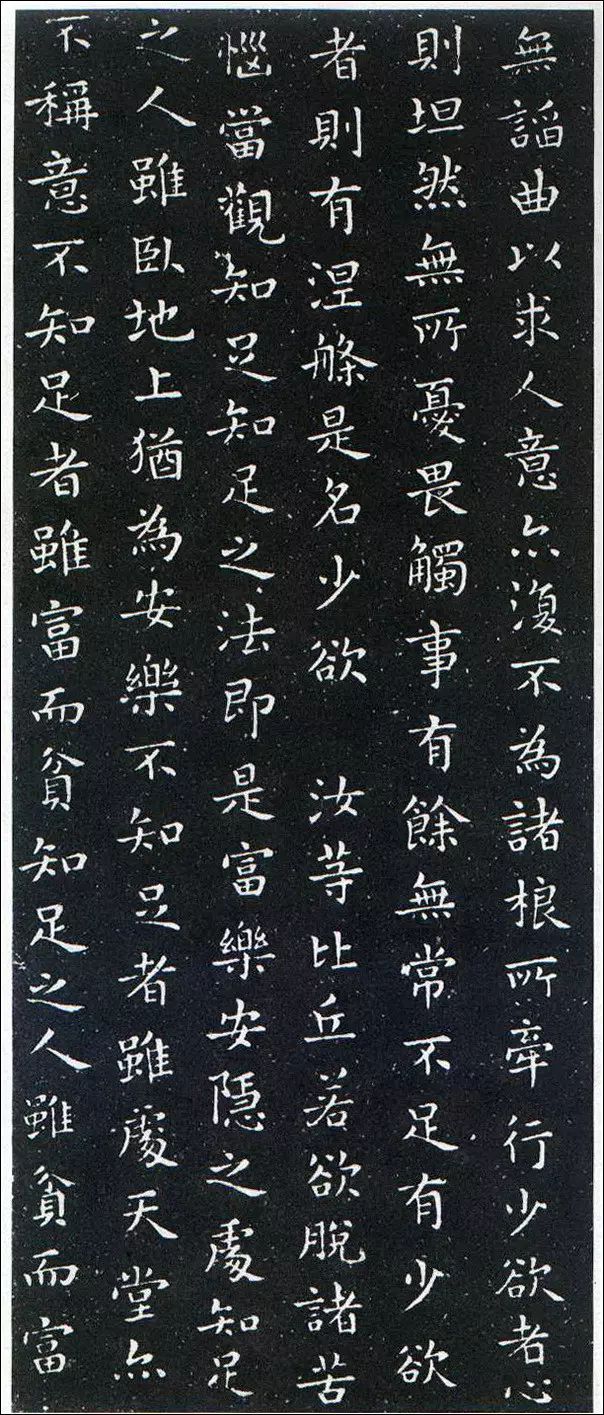 無謟曲以求人意亦復不為諸根所牽行少欲者心
則坦然無所憂畏觸事有餘無常不足有少欲
者則有涅槃是名少欲　汝等比丘若欲脫諸苦
惱當觀知足知足之法即是富樂安隱之處知足
之人雖臥地上猶為安樂不知足者雖處天堂亦
不稱意不知足者雖富而貧知足之人雖貧而富